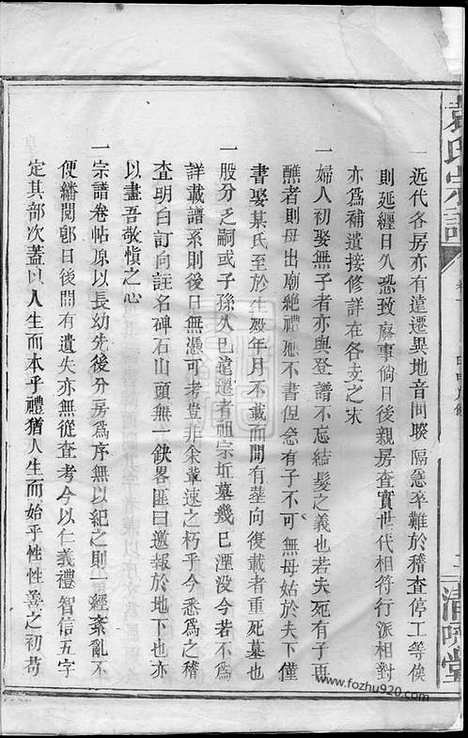 袁氏宗譜
卷一
清
堂
一近代各房亦有遠遷異地音問暌隔急卒難於稽查停工等俟
則延經日久恐致廢事倘日後親房查實世代相符行派相對
亦爲補遺接修詳在各支之末
一婦人初娶無子者亦與登譜不忘結髮之義也若夫死有子再
醮者則母出廟絶禮應不書但念有子不可無母姑於夫下僅
書娶某氏至於生殁年月不載而有塟向後載者重死墓也
一股分乏嗣或子孫久已遠遷者祖宗坵墓幾已湮没今若不
詳載譜系則後日無憑可考豈非余輩速之朽乎今悉爲之稽
查明白訂向註名碑石山頭無一鈌畧匪曰邀報於地下也亦
以盡吾敬愼之心
一宗譜卷帖原以長幼先後分房爲序無以紀之則一經紊亂不
便繙閱卽日後間有遺失亦無從查考今以仁義禮智信五字
定其部次蓋以人生而本乎禮猶人生而始乎性性善之初苟
www.fozhu920.com